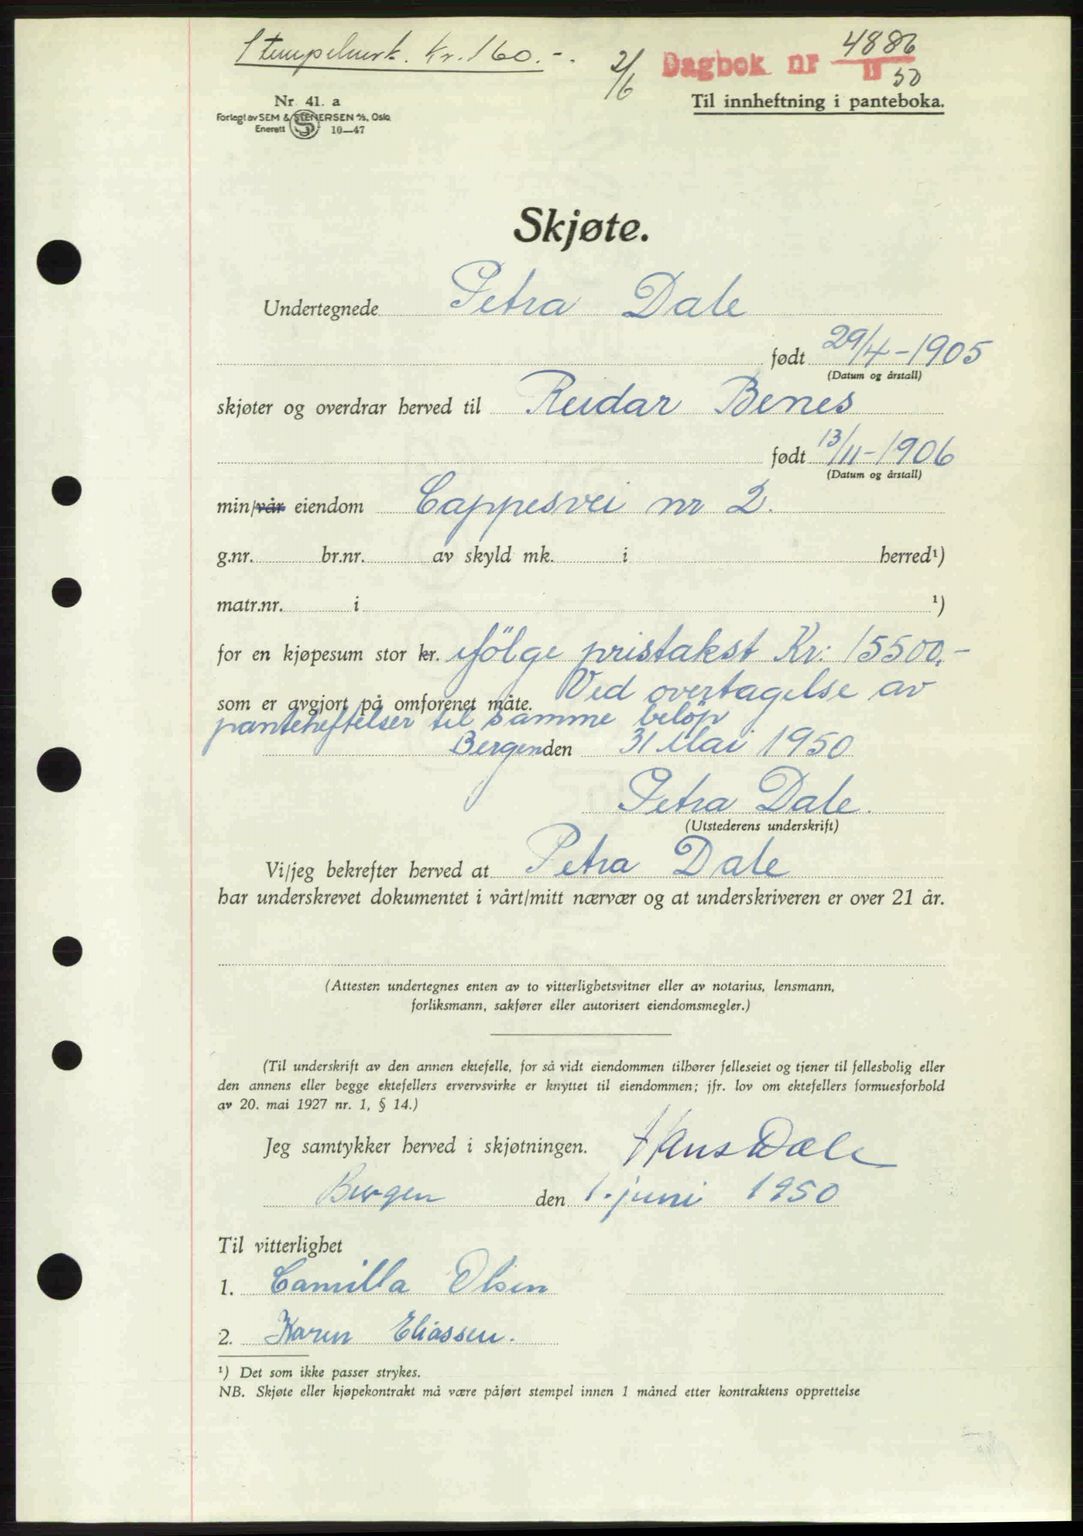 Stempelmerk. Kr. 160.-.
2/6
Dagbok nr 4886
11 50
Til innheftning i panteboka.
Nr. 41. a
Forlagt av SEM & STENERSEN A/S, Oslo
Enerett S 10—47
Skjøte.
Undertegnede Petra Dale
født 29/4-1905
(Datum og årstall)
skjøter og overdrar herved til Reidar Benes
født 13/11-1906
(Datum og årstall)
min/vår eiendom Cappesvei nr 2.
g.nr. br.nr. av skyld mk. i herred¹)
matr.nr. i ¹)
for en kjøpesum stor kr. ifölge pristakst Kr: 15500,-
som er avgjort på omforenet måte. Ved overtagelse av
panteheftelser til samme belöp
Bergen den 31 Mai 1950
Petra Dale.
(Utstederens underskrift)
Vi/jeg bekrefter herved at Petra Dale
har underskrevet dokumentet i vårt/mitt nærvær og at underskriveren er over 21 år.
(Attesten undertegnes enten av to vitterlighetsvitner eller av notarius, lensmann,
forliksmann, sakfører eller autorisert eiendomsmegler.)
(Til underskrift av den annen ektefelle, for så vidt eiendommen tilhører felleseiet og tjener til fellesbolig eller
den annens eller begge ektefellers ervervsvirke er knyttet til eiendommen; jfr. lov om ektefellers formuesforhold
av 20. mai 1927 nr. 1, § 14.)
Jeg samtykker herved i skjøtningen. Hans Dale
Bergen den 1. juni 1950
Til vitterlighet
1. Camilla Olsen
2. Karen Eliassen.
¹) Det som ikke passer strykes.
NB. Skjøte eller kjøpekontrakt må være påført stempel innen 1 måned etter kontraktens opprettelse